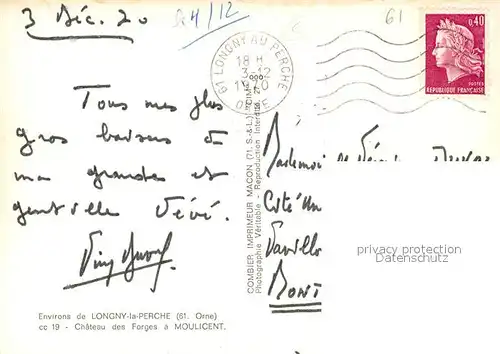 3 Déc. 70
24/12
61
61 LONGNY AU PERCHE
18 H
3-12
1970
ORNE
0,40
POSTES
REPUBLIQUE FRANÇAISE
Tous mes plus
gros baisers à
ma grande et
gentille Vévé.
COMBIER IMPRIMEUR MACON (71, S.-&-L.) "CIM"
Photographie Véritable - Reproduction Interdite
Mademoi
Cité
MONT
privacy protection
Environs de LONGNY-la-PERCHE (61. Orne)
cc 19 - Château des Forges à MOULICENT.